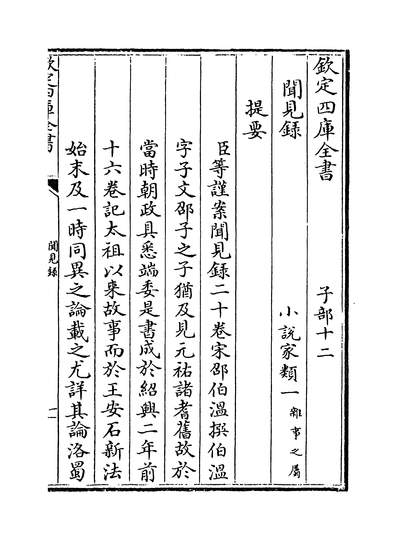 欽定四庫全書　子部十二
聞見録　小説家類一雜事之屬
提要
臣等謹案聞見録二十卷宋邵伯溫撰伯溫
字子文邵子之子猶及見元祐諸耆舊故於
當時朝政具悉端委是書成於紹興二年前
十六卷記太祖以來故事而於王安石新法
始末及一時同異之論載之尤詳其論洛蜀
欽定四庫全書
聞見録
一